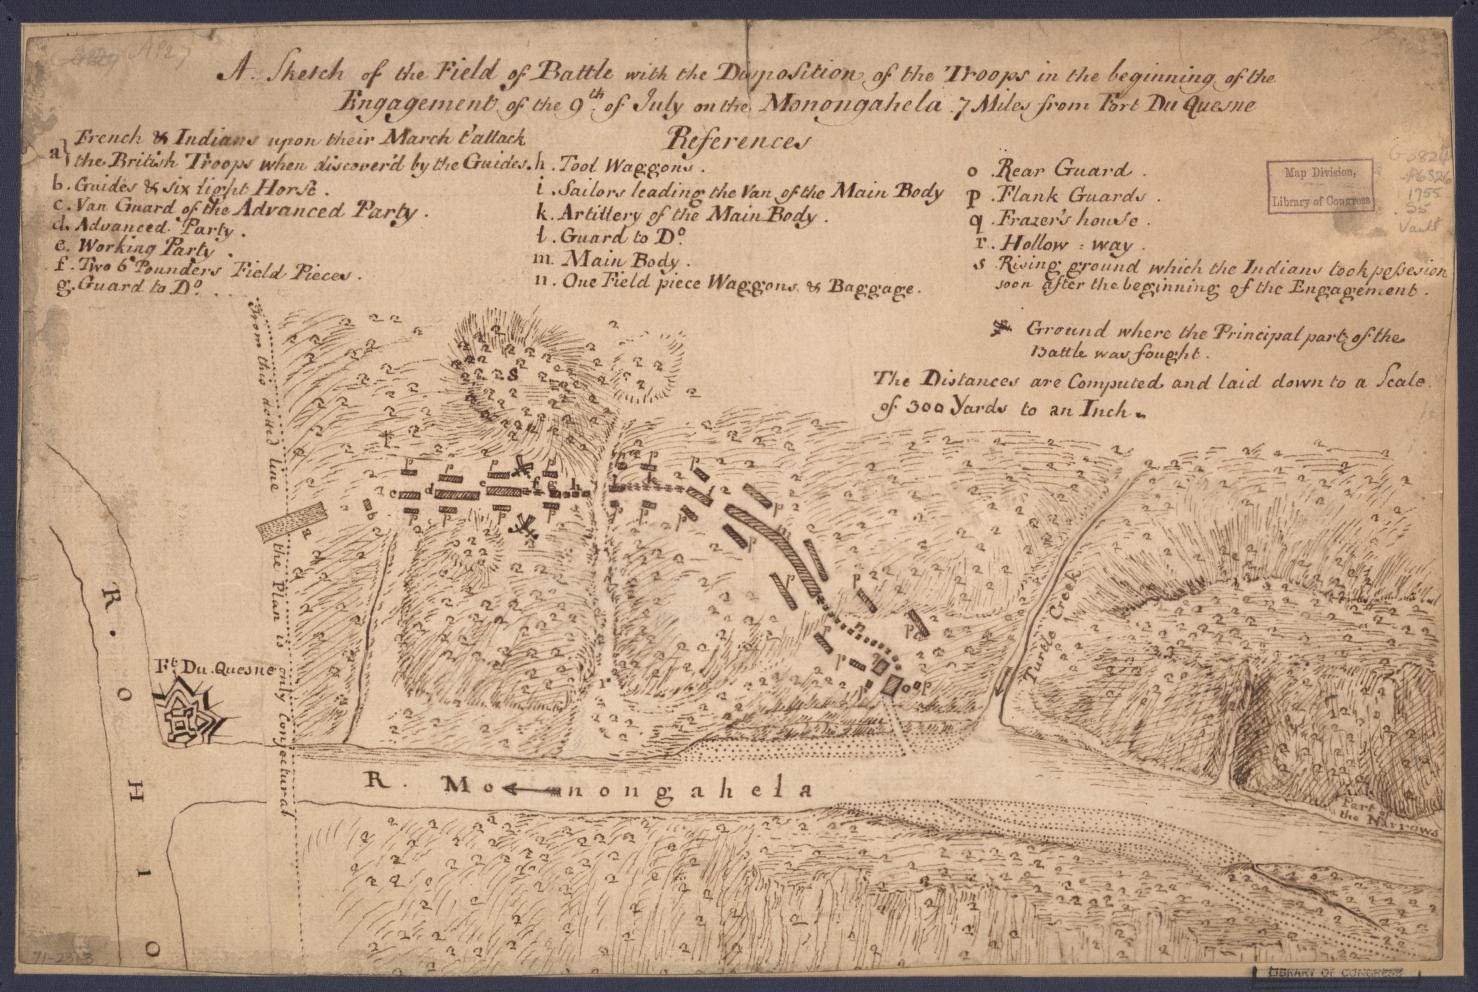 A. Sketch of the Field of Battle with the Disposition of the Troops in the beginning of the
Engagement of the 9th of July on the Monongahela 7 Miles from Fort Du Quesne
References
a} French & Indians upon their March t'attack
the British Troops when discover'd by the Guides.
b. Guides & six light Horse.
c. Van Guard of the Advanced Party.
d. Advanced Party.
e. Working Party.
f. Two 6 Pounders Field Pieces.
g. Guard to Do.
h. Tool Waggons.
i. Sailors leading the Van of the Main Body
k. Artillery of the Main Body.
l. Guard to Do.
m. Main Body.
n. One Field piece Waggons & Baggage.
o. Rear Guard.
p. Flank Guards.
q. Frazer's house.
r. Hollow-way.
s. Rising ground which the Indians took possesion
soon after the beginning of the Engagement.
Ground where the Principal part of the
Battle was fought.
The Distances are Computed and laid down to a Scale
of 300 Yards to an Inch.
Map Division,
Library of Congress
1755
Vault
From this dotted line the Plan is only Conjectural
Ft Du Quesne
R. OHIO
R. Monongahela
Turtle Creek
Part of
the Narrows
71-2313
LIBRARY OF CONGRESS